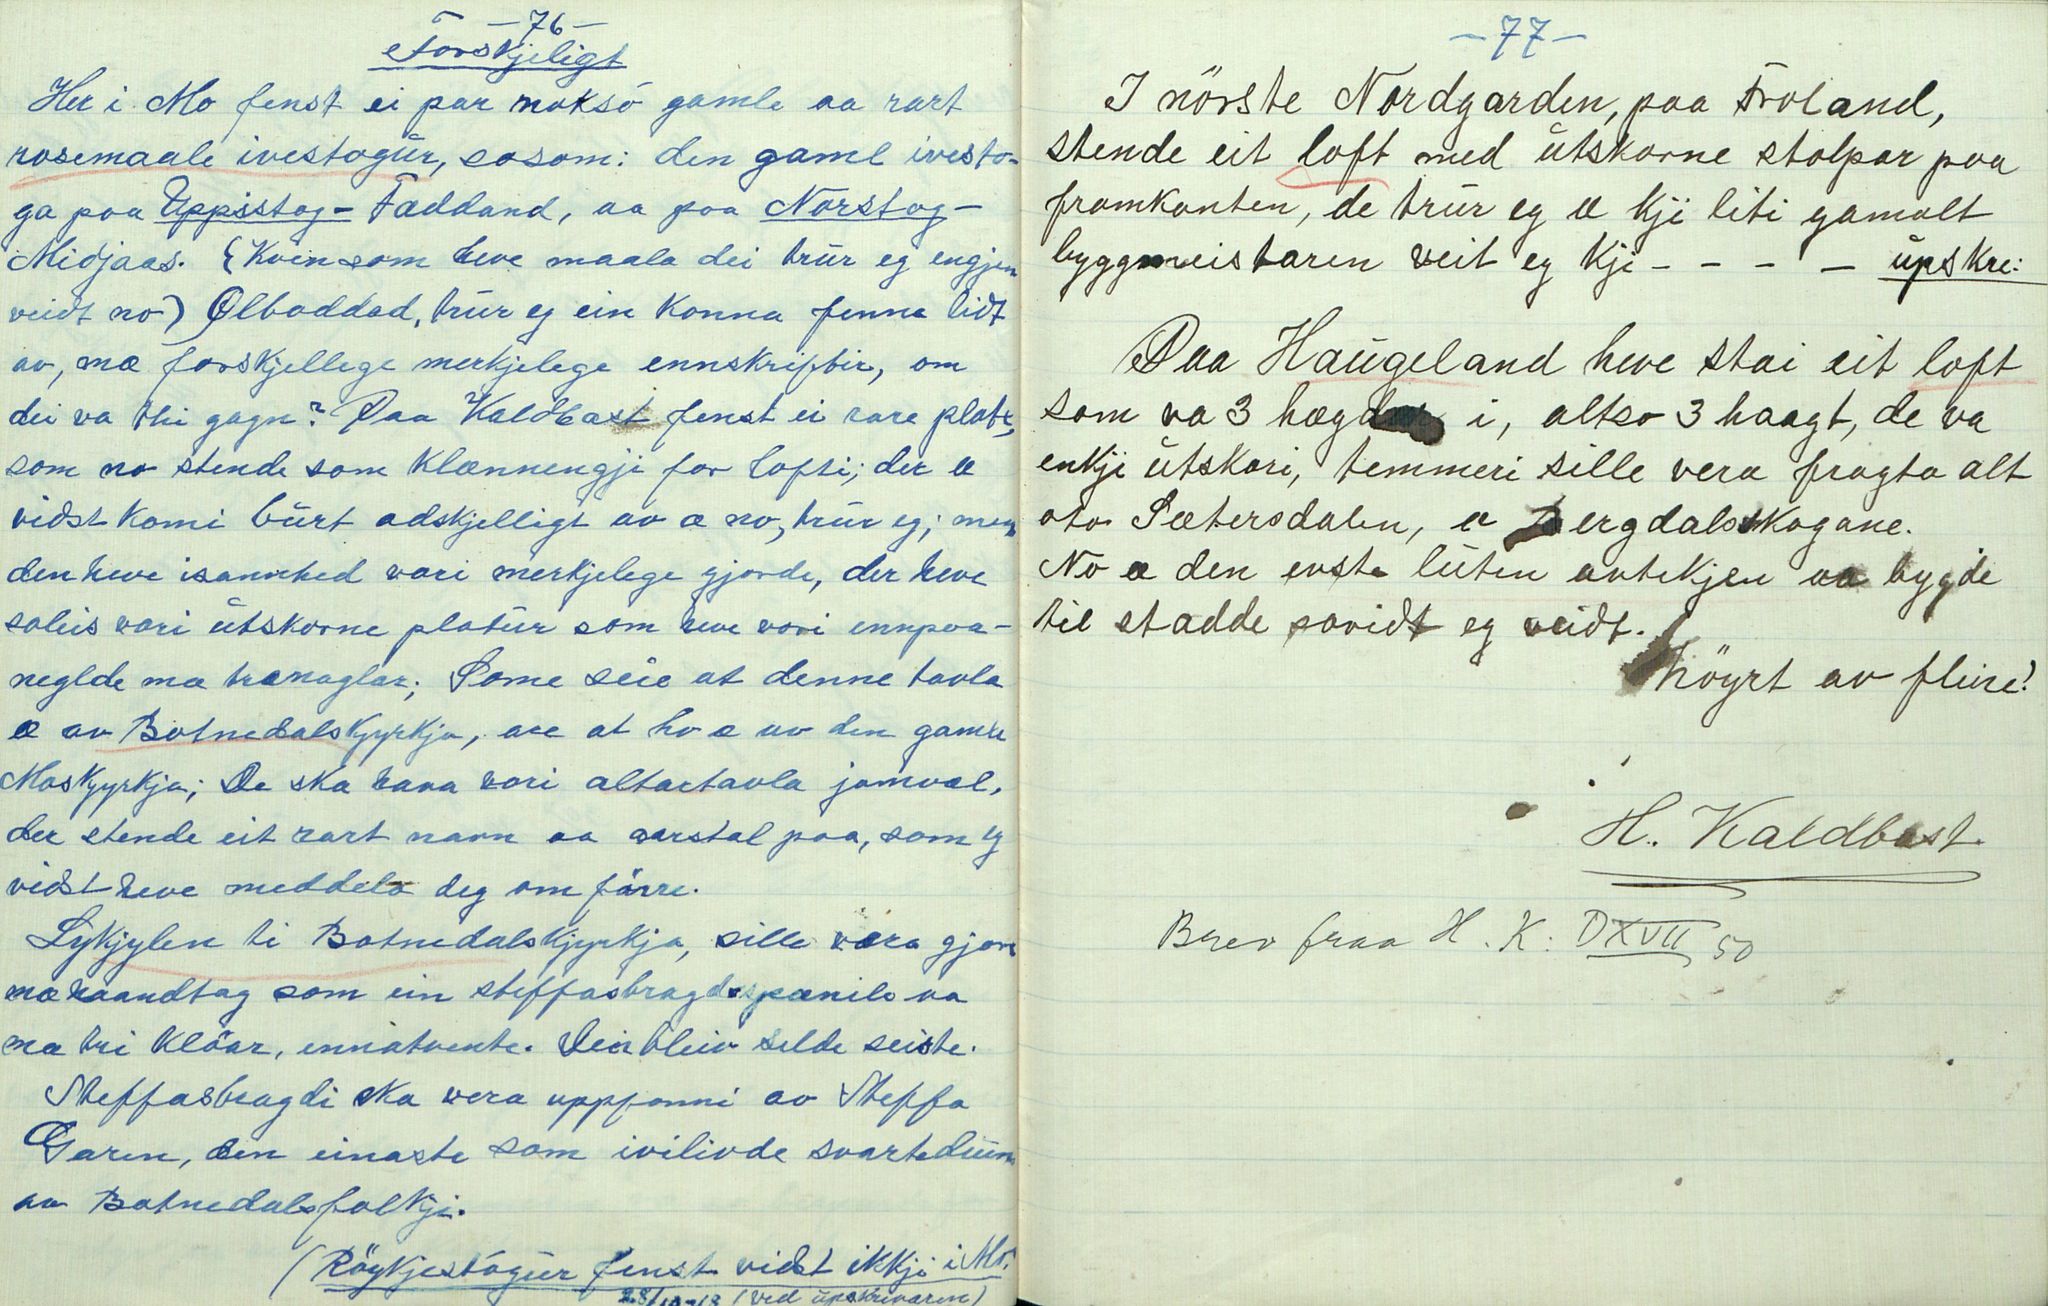 -76-
Forskjeligt
Her i Mo fenst ei par noksó gamle aa rart
rosemaale ivestogŭr, sosom: den gaml ivesto-
ga paa Uppsstog- Fæddand, aa paa Norstog-
Midjaas. (Kvin som heve maala dei trŭr eg engjen
veidt no) Ølboddad, trŭr eg ein konna fenna lidt
av, mæ forskjellege merkjelege ennskriftir, om
dei va thi gagn? Paa Kaldbast fenst ei rare plate,
som no stende som klænnengji for lofti; der æ
vidst komi bŭrt adskjelligt av æ no, trŭr eg; men
den heve isannhed vari merkjelege gjorde, der heve
soleis vari ŭtskorne platŭr som heve vori ennpaa-
neglde mæ trænaglar; Some seie at denne tavla
æ av Botnedalskjyrkja, are at ho æ av den gamle
Moskjyrkja; De ska hava vori altartavla jamvæl,
der stende eit rart navn aa aarstal paa, som eg
vidst heve meddela deg om förre.
Lykjylen ti Botnedalskjyrkja, sille væra gjor
mæ haandtag som ein steffasbragdspænile va
mæ tri klöar, ennátvente. Dei bleiv selde seiste.
Steffasbragdi ska vera uppfonni av Steffa
Garen, den einaste som ivilivde svartedŭun
av Botnedalsfolkji.
(Röykjestógŭr fenst vidst ikkji i Mo.
(ved ŭpskrivaren)
-77-
I nörste Nordgarden, paa Froland,
stende eit loft med ŭtskorne stolpar paa
framkanten, de trŭr eg æ kji liti gamalt
byggmeistaren veit eg kji - - - - ŭpskre:
Paa Haŭgeland heve stai eit loft
som va 3 hægd i, altso 3 haagt, de va
enkji ŭtskori, temmeri sille vera fragta alt
oto Sætersdalen, a ergdalsskogane.
No æ den erste lŭten avtekjen aa bygde
til stadde sovidt eg veidt.
höyrt av fleire!
H. Kaldbast.
Brev fraa H. K: DXVII 50